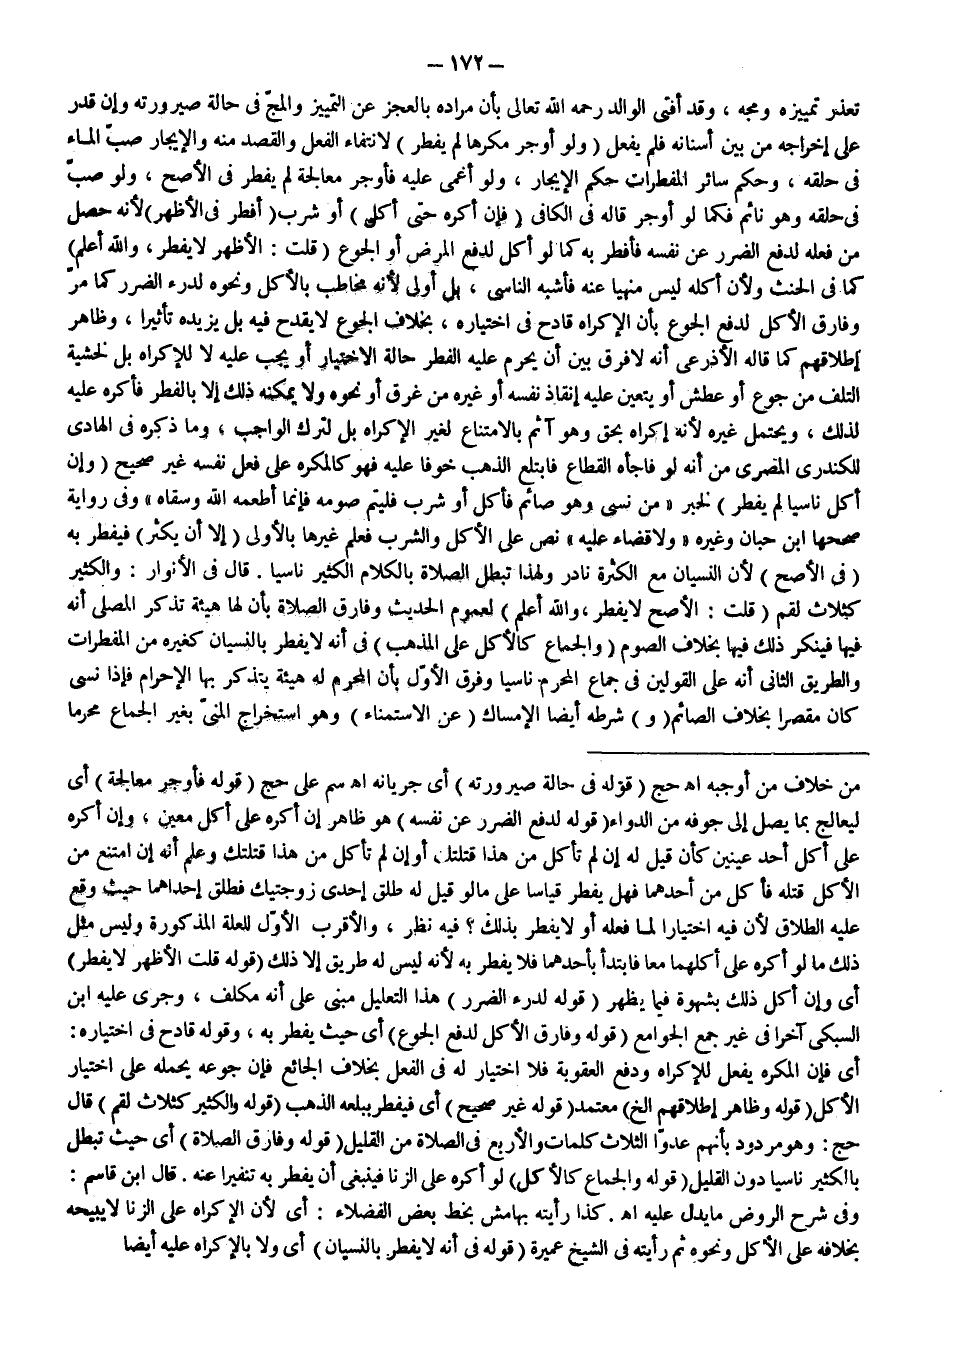 – ١٧٢ –
تعذر تمييزه ومجه ، وقد أفتى الوالد رحمه الله تعالى بأن مراده بالعجز عن التمييز والمجّ فى حالة صيرورته وإن قدر
على إخراجه من بين أسنانه فلم يفعل ( ولو أوجر مكرها لم يفطر ) لانتفاء الفعل والقصد منه والإيجار صبّ الماء
فى حلقه ، وحكم سائر المفطرات حكم الإيجار ، ولو أغمى عليه فأوجر معالجة لم يفطر فى الأصح ، ولو صبّ
فى حلقه وهو نائم فكما لو أوجر قاله فى الكافى ( فإن أكره حتى أكل ) أو شرب( أفطر فى الأظهر)لأنه حصل
من فعله لدفع الضرر عن نفسه فأفطر به كما لو أكل لدفع المرض أو الجوع ( قلت : الأظهر لايفطر ، والله أعلم)
كما فى الحنث ولأن أكله ليس منهيا عنه فأشبه الناسى ، بل أولى لأنه مخاطب بالأكل ونحوه لدرء الضرر كما مرّ
وفارق الأكل لدفع الجوع بأن الإكراه قادح فى اختياره ، بخلاف الجوع لايقدح فيه بل يزيده تأثيرا ، وظاهر
إطلاقهم كما قاله الأذرعى أنه لافرق بين أن يحرم عليه الفطر حالة الاختيار أو يجب عليه لا للإكراه بل لخشية
التلف من جوع أو عطش أو يتعين عليه إنقاذ نفسه أو غيره من غرق أو نحوه ولا يمكنه ذلك إلا بالفطر فأكره عليه
لذلك ، ويحتمل غيره لأنه إكراه بحق وهو آثم بالامتناع لغير الإكراه بل لترك الواجب ، وما ذكره فى الهادى
للكندرى المصرى من أنه لو فاجأه القطاع فابتلع الذهب خوفا عليه فهو كالمكره على فعل نفسه غير صحيح ( وإن
أكل ناسيا لم يفطر ) لخبر « من نسى وهو صائم فأكل أو شرب فليتم صومه فإنما أطعمه الله وسقاه » وفى رواية
صححها ابن حبان وغيره « ولاقضاء عليه » نص على الأكل والشرب فعلم غيرها بالأولى ( إلا أن يكثر ) فيفطر به
( فى الأصح ) لأن النسيان مع الكثرة نادر ولهذا تبطل الصلاة بالكلام الكثير ناسيا . قال فى الأنوار : والكثير
كثلاث لقم ( قلت : الأصح لايفطر ، والله أعلم ) لعموم الحديث وفارق الصلاة بأن لها هيئة تذكر المصلى أنه
فيها فيندر ذلك فيها بخلاف الصوم ( والجماع كالأكل على المذهب ) فى أنه لايفطر بالنسيان كغيره من المفطرات
والطريق الثانى أنه على القولين فى جماع المحرم ناسيا وفرق الأوّل بأن المحرم له هيئة يتذكر بها الإحرام فإذا نسى
كان مقصرا بخلاف الصائم( و ) شرطه أيضا الإمساك ( عن الاستمناء ) وهو استخراج المنىّ بغير الجماع محرما
من خلاف من أوجبه اه حج ( قوله فى حالة صيرورته ) أى جريانه اه سم على حج ( قوله فأوجر معالجة ) أى
ليعالج بما يصل إلى جوفه من الدواء( قوله لدفع الضرر عن نفسه ) هو ظاهر إن أكره على أكل معين ، وإن أكره
على أكل أحد عينين كأن قيل له إن لم تأكل من هذا قتلتك أو إن لم تأكل من هذا قتلتك وعلم أنه إن امتنع من
الأكل قتله فأكل من أحدهما فهل يفطر قياسا على مالو قيل له طلق إحدى زوجتيك فطلق إحداهما حيث وقع
عليه الطلاق لأن فيه اختيارا لما فعله أو لايفطر بذلك ؟ فيه نظر ، والأقرب الأوّل للعلة المذكورة وليس مثل
ذلك ما لو أكره على أكلهما معا فابتدأ بأحدهما فلا يفطر به لأنه ليس له طريق إلا ذلك (قوله قلت الأظهر لايفطر)
أى وإن أكل ذلك بشهوة فيما يظهر ( قوله لدرء الضرر ) هذا التعليل مبنى على أنه مكلف ، وجرى عليه ابن
السبكى آخرا فى غير جمع الجوامع ( قوله وفارق الأكل لدفع الجوع) أى حيث يفطر به ، وقوله قادح فى اختياره :
أى فإن المكره يفعل للإكراه ودفع العقوبة فلا اختيار له فى الفعل بخلاف الجائع فإن جوعه يحمله على اختيار
الأكل( قوله وظاهر إطلاقهم الخ) معتمد( قوله غير صحيح ) أى فيفطر ببلعه الذهب (قوله والكثير كثلاث لقم ) قال
حج : وهو مردود بأنهم عدوّا الثلاث كلمات والأربع فى الصلاة من القليل( قوله وفارق الصلاة ) أى حيث تبطل
بالكثير ناسيا دون القليل( قوله والجماع كالأكل) لو أكره على الزنا فينبغى أن يفطر به تنفيرا عنه . قال ابن قاسم :
وفى شرح الروض مايدل عليه اه . كذا رأيته بهامش بخط بعض الفضلاء : أى لأن الإكراه على الزنا لايبيحه
بخلافه على الأكل ونحوه ثم رأيته فى الشيخ عميرة ( قوله فى أنه لايفطر بالنسيان ) أى ولا بالإكراه عليه أيضا